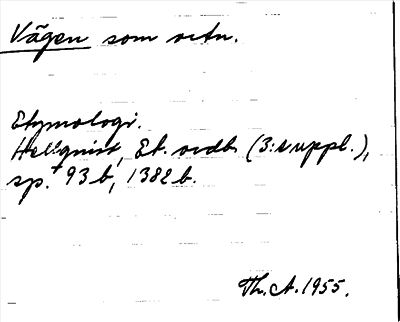 Vägen som ortn.
Etymologi.
Hellquist, Et. ordb. (3:suppl.),
sp. 93 b, 1382 b.
Th. A. 1955.